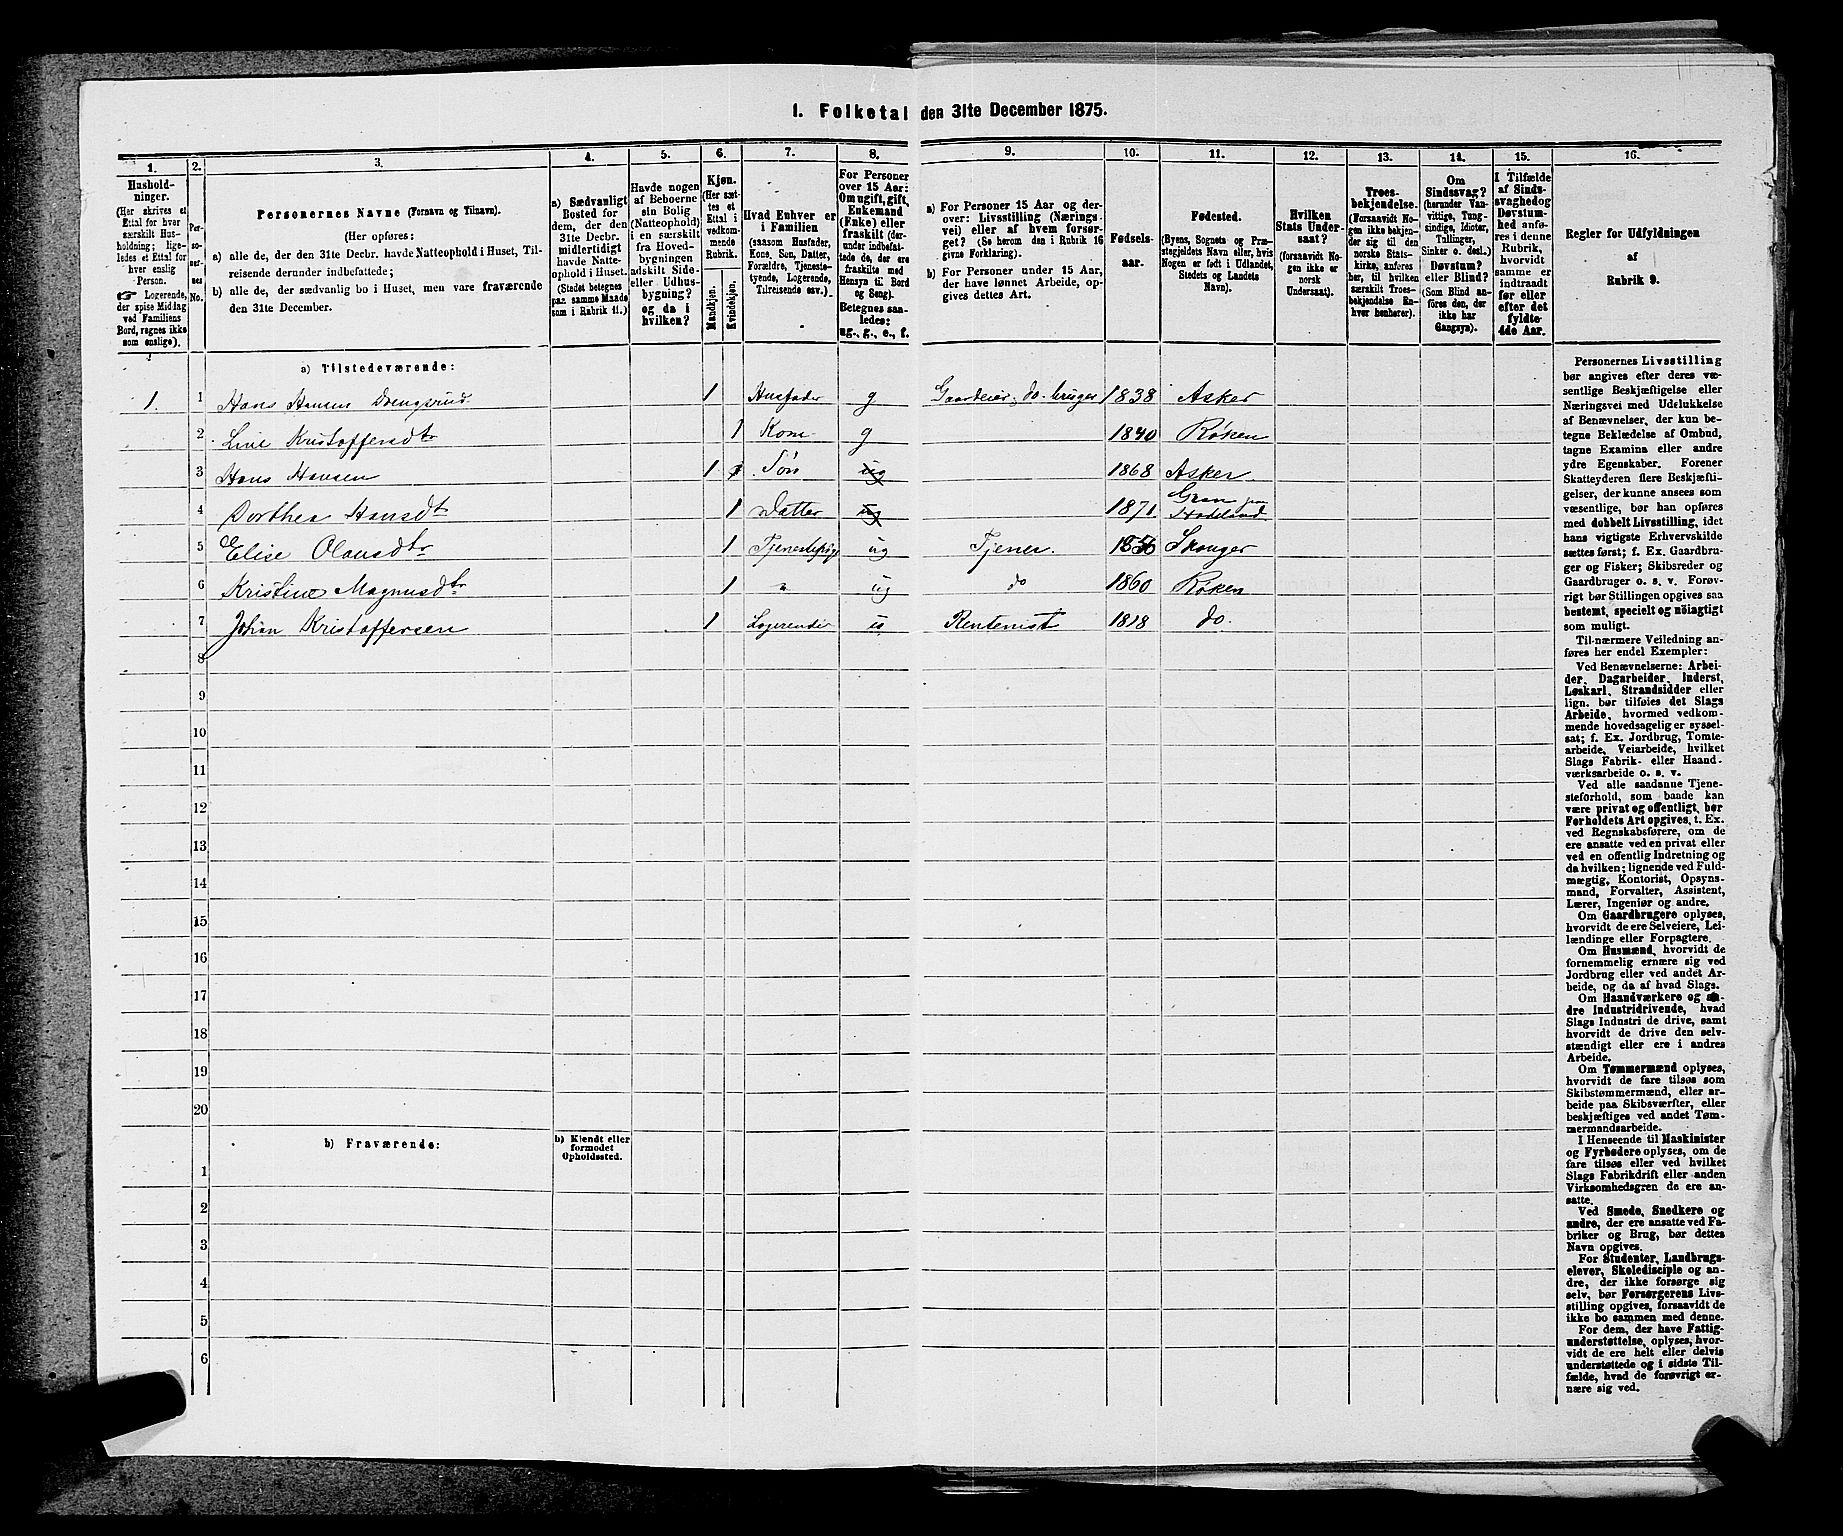 1. Folketal den 31te December 1875.
1.
2.
3.
4.
5.
6.
7.
8.
9.
10.
11.
12.
13.
14.
15.
16.
Hushold-
ninger.
(Her skrives et
Ettal for hver
særskilt Hus-
holdning; lige-
ledes et Ettal for
hver enslig
Person.
☞ Logerende,
der spise Middag
ved Familiens
Bord, regnes ikke
som enslige).
Per-
so-
ner-
nes
No.
Personernes Navne (Fornavn og Tilnavn).
(Her opføres:
a) alle de, der den 31te Decbr. havde Natteophold i Huset, Til-
reisende derunder indbefattede;
b) alle de, der sædvanlig bo i Huset, men vare fraværende
den 31te December.
a) Sædvanligt
Bosted for
dem, der den
31te Decbr.
midlertidigt
havde Natte-
ophold i Huset.
(Stedet betegnes
paa samme Maade
som i Rubrik 11.)
Havde nogen
af Beboerne
sin Bolig
(Natteophold)
i en særskilt
fra Hoved-
bygningen
adskilt Side-
eller Udhus-
bygning?
og da i
hvilken?
Kjøn.
(Her sæt-
tes et
Ettal i
vedkom-
mende
Rubrik.
Mandkjøn.
Kvindekjøn.
Hvad Enhver er
i Familien
(saasom Husfader,
Kone, Søn, Datter,
Forældre, Tjeneste-
tyende, Logerende,
Tilreisende osv.)
For Personer
over 15 Aar:
Om ugift, gift,
Enkemand
(Enke) eller
fraskilt (der-
under indbefat-
tede de, der ere
fraskilte med
Hensyn til Bord
og Seng).
Betegnes saa-
ledes:
ug., g., e., f.
a) For Personer 15 Aar og der-
over: Livsstilling (Nærings-
vei) eller af hvem forsør-
get? (Se herom den i Rubrik 16
givne Forklaring).
b) For Personer under 15 Aar,
der have lønnet Arbeide, op-
gives dettes Art.
Fødsels-
aar.
Fødested.
(Byens, Sognets og Præ-
stegjeldets Navn eller, hvis
Nogen er født i Udlandet,
Stedets og Landets
Navn).
Hvilken
Stats Under-
saat?
(forsaavidt No-
gen ikke er
norsk
Undersaat).
Troes-
bekjendelse.
(Forsaavidt No-
gen ikke bekjen-
der sig til den
norske Stats-
kirke, anføres
her, til hvilken
særskilt Troes-
bekjendelse En-
hver henhører).
Om
Sindssvag?
(herunder Van-
vittige, Tung-
sindige, Idioter,
Tullinger,
Sinker o. desl.)
Døvstum?
eller Blind?
(Som Blind an-
føres den, der
ikke har
Gangsyn).
I Tilfælde
af Sinds-
svaghed og
Døvstum-
hed anfø-
res i denne
Rubrik,
hvorvidt
samme er
indtraadt
før eller
efter det
fyldte
4de Aar.
Regler for Udfyldningen
af
Rubrik 9.
a) Tilstedeværende:
1. 1 Hans Hansen 1 Husfader g Gaardeier, do. bruger 1838 Asker
2 Line Kristoffersdtr 1 Kone g 1840 Røken
3 Hans Hansen 1 Søn ug 1868 Asker
4 Dorthea Hansdtr 1 Datter ug 1871 Gran paa Hadeland
5 Elise Olausdtr 1 ug Tjener. Skouger
6 Kristine Magnusdtr 1 " ug do 1860 Røken
7 Johan Kristoffersen 1 Logerende Rentenist 1818 do.
8
9
10
11
12
13
14
15
16
17
18
19
20
b) Fraværende:
b) Kjendt eller
formodet
Opholdssted.
1
2
3
4
5
6
Personernes Livsstilling
bør angives efter deres væ-
sentlige Beskjæftigelse eller
Næringsvei med Udelukkelse
af Benævnelser, der kun be-
tegne Beklædelse af Ombud,
tagne Examina eller andre
ydre Egenskaber. Forener
Skatteyderen flere Beskjæfti-
gelser, der kunne ansees som
væsentlige, bør han opføres
med dobbelt Livsstilling, idet
hans vigtigste Erhvervskilde
sættes først; f. Ex. Gaardbru-
ger og Fisker; Skibsreder og
Gaardbruger o. s. v. Forøv-
rigt bør Stillingen opgives saa
bestemt, specielt og nøiagtigt
som muligt.
Til nærmere Veiledning an-
føres her endel Exempler:
Ved Benævnelserne: Arbei-
der, Dagarbeider, Inderst,
Løskarl, Strandsidder eller
lign. bør tilføies det Slags
Arbeide, hvormed vedkom-
mende hovedsagelig er syssel-
sat; f. Ex. Jordbrug, Tomte-
arbeide, Veiarbeide, hvilket
Slags Fabrik- eller Haand-
værksarbeide o. s. v.
Ved alle saadanne Tjene-
steforhold, som baade kan
være privat og offentligt, bør
Forholdets Art opgives, t. Ex.
ved Regnskabsførere, om de
ere ansatte ved en privat eller
ved en offentlig Indretning og
da hvilken; lignende ved Fuld-
mægtig, Kontorist, Opsyns-
mand, Forvalter, Assistent,
Lærer, Ingeniør og andre.
Om Gaardbrugere oplyses,
hvorvidt de ere Selveiere, Lei-
lændinge eller Forpagtere.
Om Husmænd, hvorvidt de
fornemmelig ernære sig ved
Jordbrug eller ved andet Ar-
beide, og da af hvad Slags.
Om Haandværkere og an-
dre Industridrivende, hvad
Slags Industri de drive, samt
hvorvidt de drive den selv-
stændigt eller ere i andres
Arbeide.
Om Tømmermænd oplyses,
hvorvidt de fare tilsøs som
Skibstømmermænd, eller ar-
beide paa Skibsværfter, eller
beskjæftiges ved andet Tøm-
mermandsarbeide.
I Henseende til Maskinister
og Fyrbødere oplyses, om de
fare tilsøs eller ved hvilket
Slags Fabrikdrift eller anden
Virksomhedsgren de ere an-
satte.
Ved Smede, Snedkere og
andre, der ere ansatte ved Fa-
briker og Brug, bør dettes
Navn opgives.
For Studenter, Landbrugs-
elever, Skoledisciple og an-
dre, der ikke forsørge sig
selv, bør Forsørgerens Livs-
stilling opgives, forsaavidt de
ikke bo sammen med denne.
For dem, der have Fattig-
understøttelse, oplyses, hvor-
vidt de ere helt eller delvis
understøttede og i sidste Til-
fælde, hvad de forøvrigt er-
nære sig ved.